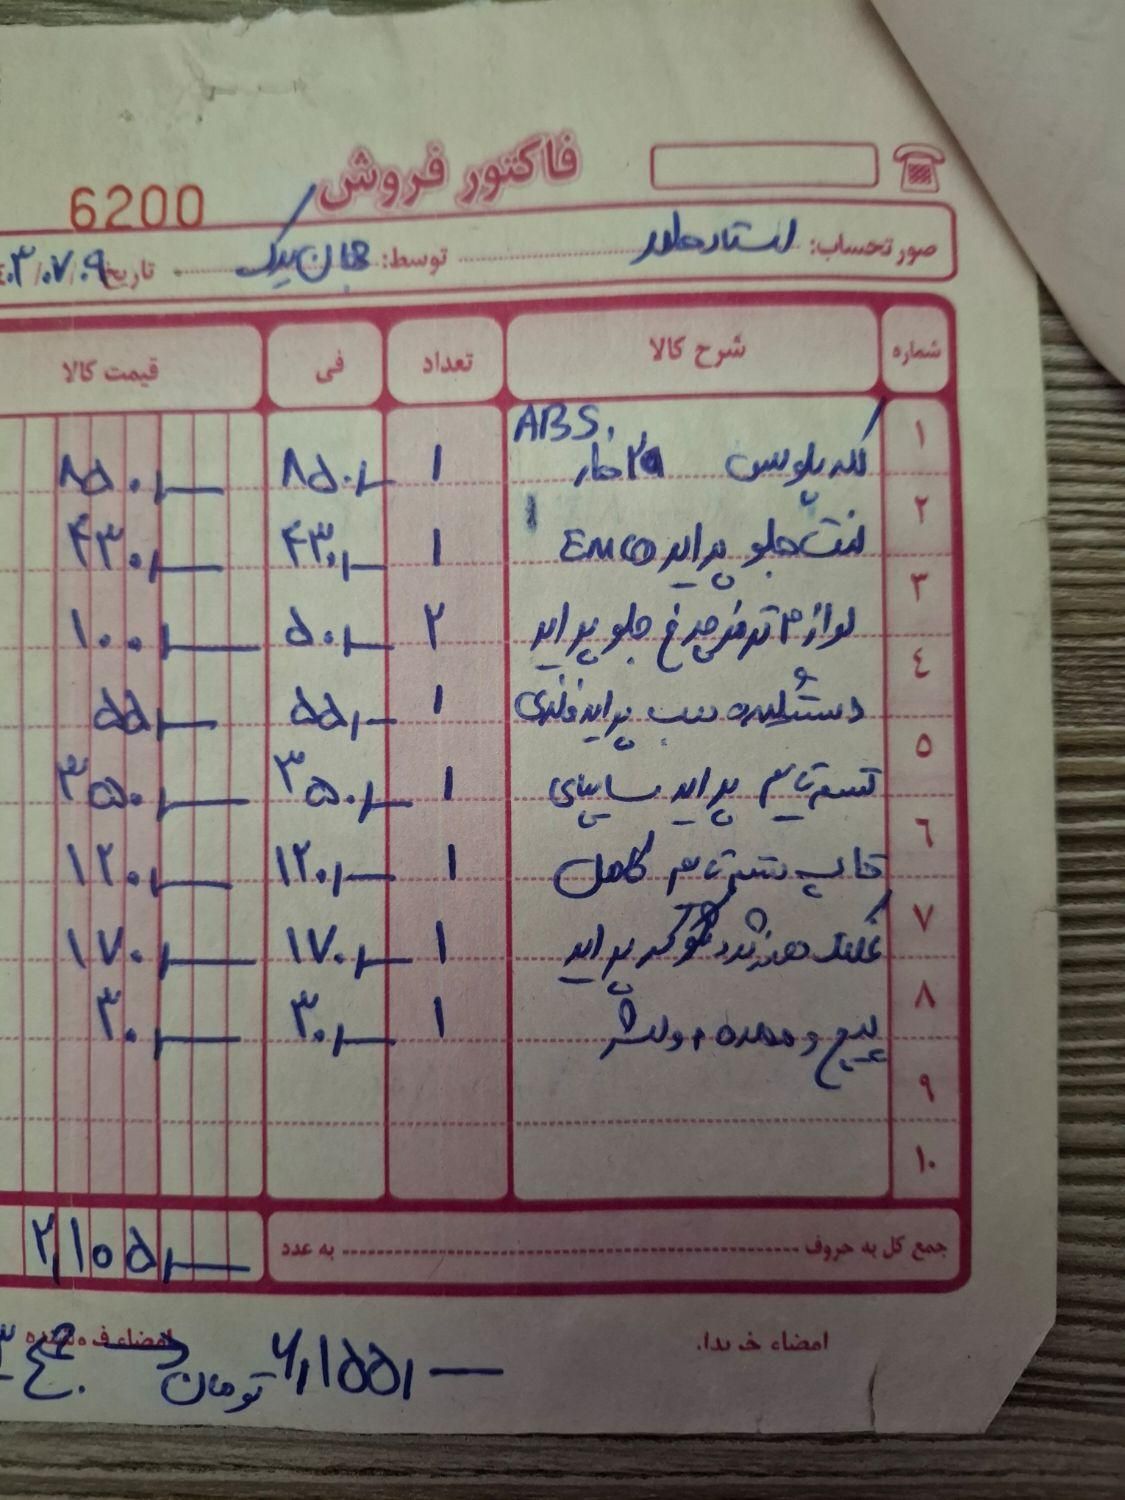 فاکتور فروش
6200
صورتحساب: استاد
توسط: جهان یدک
تاریخ ۰۳/۰۷/۰۹
شماره شرح کالا تعداد فی قیمت کالا
ABS
۱ کله پلوس ۲۹ خار ۱ ۸۵۰٫— ۸۵۰٫—
۲ لنت جلو پراید EMCO ۱ ۴۳۰٫— ۴۳۰٫—
۳ لوازم ترمز چرخ جلو پراید ۲ ۵۰٫— ۱۰۰٫—
۴ پراید فلزی ۱ ۵۵٫— ۵۵٫—
۵ تسمه تایم پراید سایپای ۱ ۳۵۰٫— ۳۵۰٫—
۶ قاب تسمه تایم کامل ۱ ۱۲۰٫— ۱۲۰٫—
۷ پراید ۱ ۱۷۰٫— ۱۷۰٫—
۸ پیچ و مهره ۱ ۳۰٫— ۳۰٫—
۹
۱۰
جمع کل به حروف به عدد ۲٫۱۰۵٫—
امضاء خریدار. امضاء فروشنده
۶٫۱۵۵٫— تومان